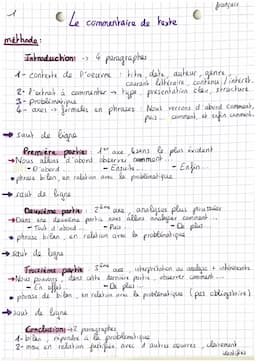 1
français
Le commentaire de texte
méthode:
Introduction → 4 paragraphes
1- contexte de l'oeuvre : titre, date, auteur, genre,
courant littéraire, contenu, intérêt.
2- l'extrait à commenter → type, présentation claire, structure.
3- problématique
4- axes → formulés en phrases. Nous verrons d'abord comment,
puis comment, et enfin comment.
→ saut de ligne
Première partie: 1er axe, sens le plus évident
→ Nous allons d'abord observer comment...
- D'abord... - Ensuite... - Enfin...
• phrase bilan, en relation avec la problématique
→ saut de ligne
Deuxième partie: 2ème axe, analyses plus poussées
→ Dans une deuxième partie nous allons analyser comment...
- Tout d'abord... - Puis... - De plus...
• phrase bilan, en relation avec la problématique
→ saut de ligne
Troisième partie: 3ème axe, interprétation ou analyse +
→ Nous pouvons, dans cette dernière partie, observer comment...
- En effet... - De plus...
• phrase de bilan, en relation avec la problématique (pas obligatoire)
→ saut de ligne
Conclusion: → 2 paragraphes
1- bilan, répondre à la problématique
2- mise en relation justifiée avec d'autres œuvres, clairement
identifiées